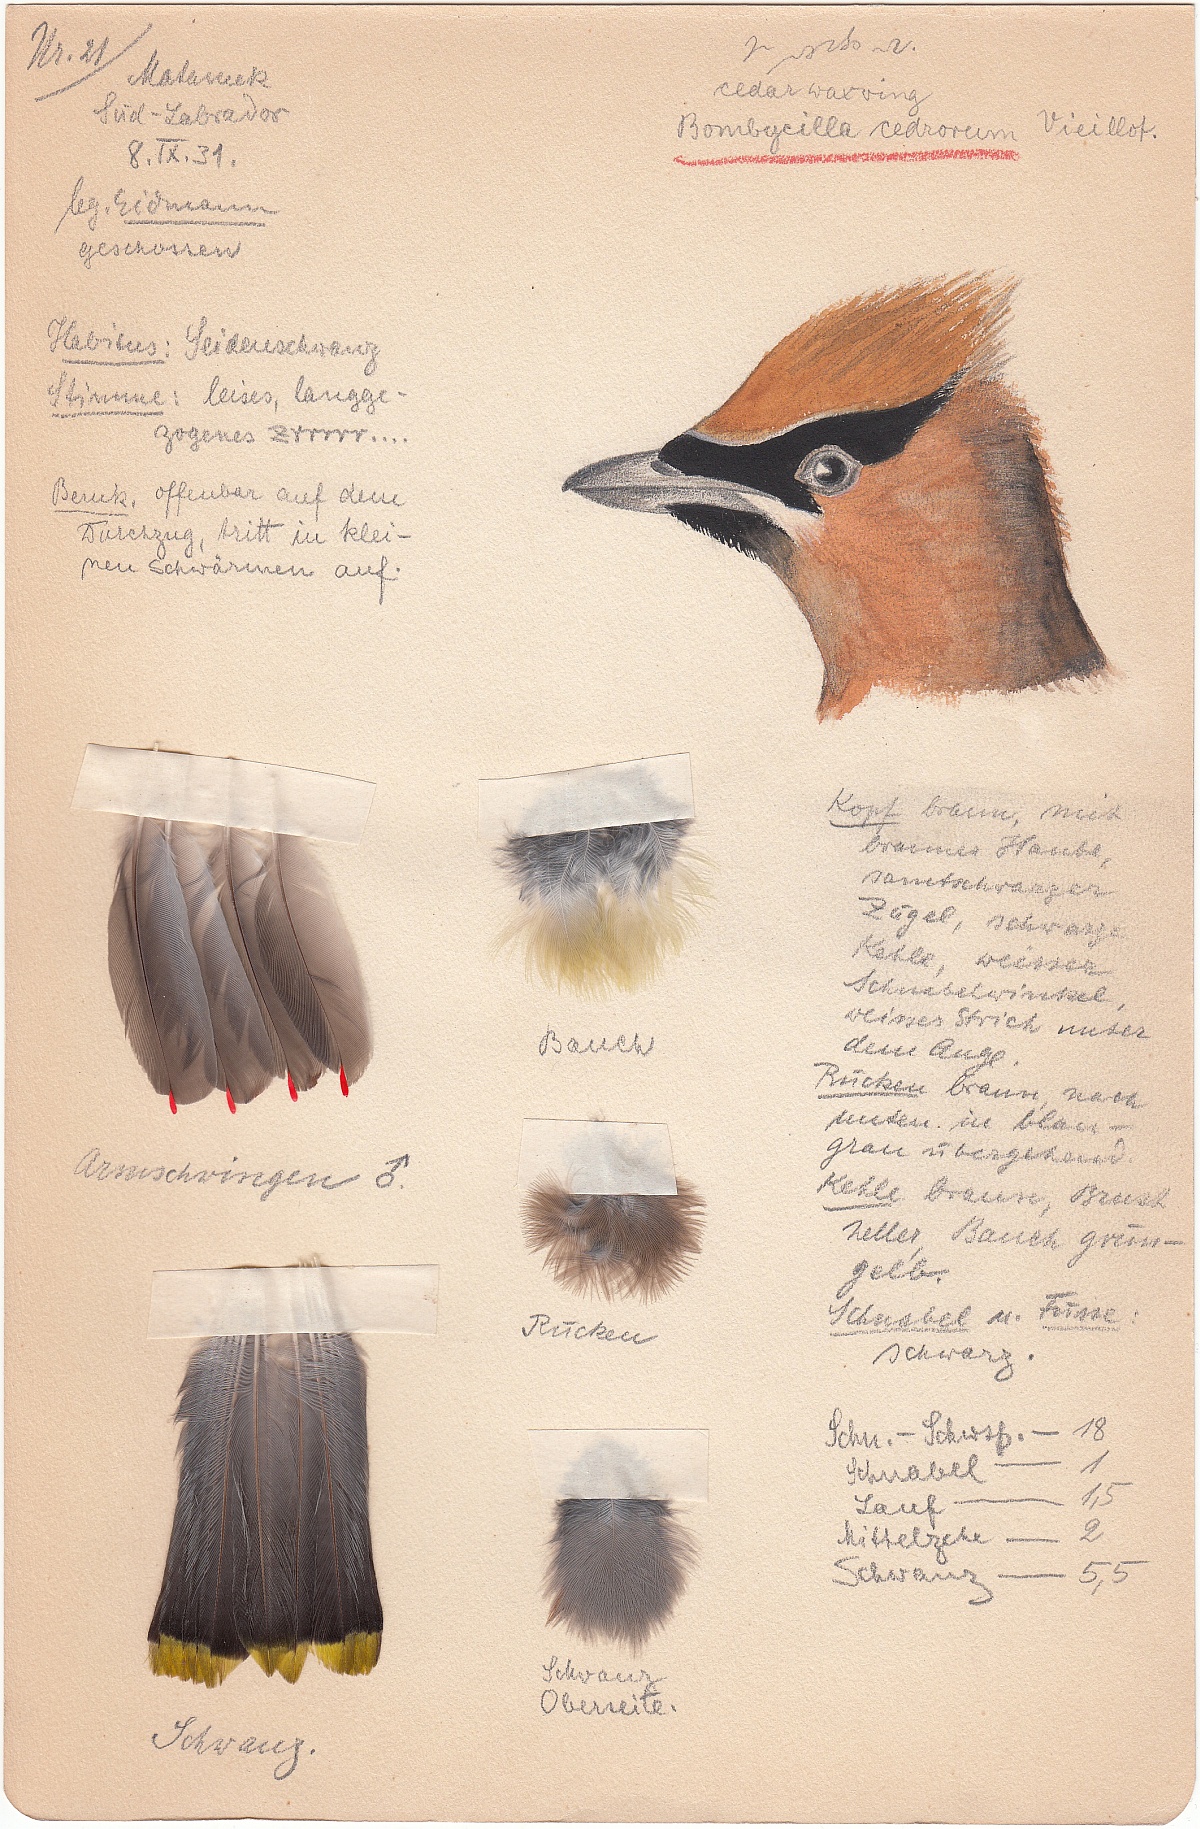 Nr. 21
Matamek
Süd-Labrador
8.IX.31.
leg. Eidmann
geschossen
cedar waxving
Bombycilla cedrorum Vieillot.
Habitus: Seidenschwanz
Stimme: leises, langge-
zogenes zrrrrr....
Bemk. offenbar auf dem
Durchzug, tritt in klei-
nen Schwärmen auf.
Kopf braun, mit
brauner Haube,
samtschwarzer
Zügel, schwarze
Kehle, weisser
Schnabelwinkel,
weisser Strich unter
dem Auge.
Rücken braun, nach
unten in blau-
grau übergehend.
Kehle braun, Brust
heller, Bauch grün-
gelb.
Schnabel u. Füsse:
schwarz.
Schn.-Schwsp. — 18
Schnabel — 1
Lauf — 1,5
Mittelzehe — 2
Schwanz — 5,5
Armschwingen ♂.
Bauch
Rücken
Schwanz
Oberseite.
Schwanz.